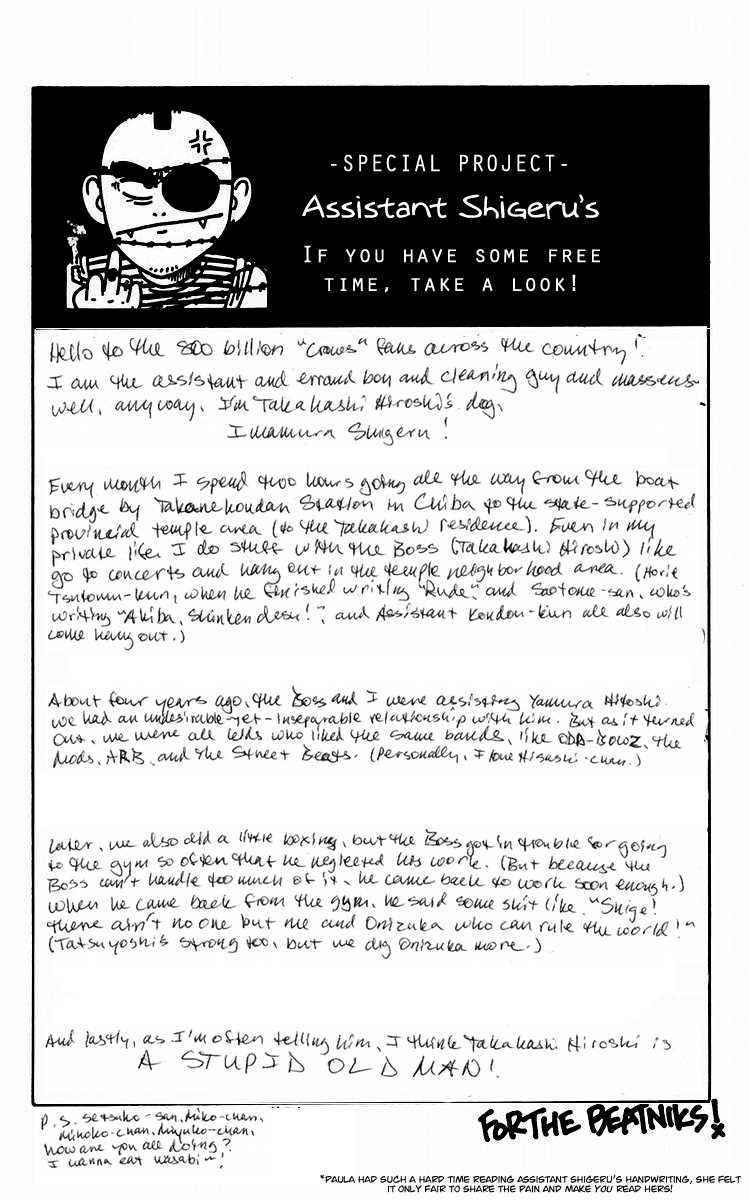 -SPECIAL PROJECT-
Assistant Shigeru's
IF YOU HAVE SOME FREE
TIME, TAKE A LOOK!
Hello to the 800 billion "Crows" fans across the country!
I am the assistant and errand boy and cleaning guy and masseus-
well, anyway, I'm Takahashi Hiroshi's dog,
Imamura Shigeru!
Every month I spend two hours going all the way from the boat
bridge by Takanekoudan Station in Chiba to the state-supported
provincial temple area (to the Takahashi residence). Even in my
private life I do stuff with the Boss (Takahashi Hiroshi) like
go to concerts and hang out in the temple neighborhood area. (Horie
Tsutomu-kun, when he finished writing "Rude", and Saotome-san, who's
writing "Akiba, Shinken desu!", and Assistant Kondou-kun all also will
come hang out.)
About four years ago, the Boss and I were assisting Yamura Hitoshi.
We had an undesirable-yet-inseparable relationship with him. But as it turned
out, we were all kids who liked the same bands, like COBRA, BOWZ, the
Mods, ARB, and the Street Beats. (Personally, I love Hisashi-chan.)
Later, we also did a little boxing, but the Boss got in trouble for going
to the gym so often that he neglected his work. (But because the
Boss can't handle too much of it, he came back to work soon enough.)
When he came back from the gym, he said some shit like, "Shige!
There ain't no one but me and Onizuka who can rule the world!"
(Tatsuyoshi's strong too, but we dig Onizuka more.)
And lastly, as I'm often telling him, I think Takahashi Hiroshi is
A STUPID OLD MAN!
P.S. Setsuko-san, Miko-chan,
Mihoko-chan, Miyuko-chan,
how are you all doing?
I wanna eat wasabi~!
FOR THE BEATNIKS!
*PAULA HAD SUCH A HARD TIME READING ASSISTANT SHIGERU'S HANDWRITING, SHE FELT
IT ONLY FAIR TO SHARE THE PAIN AND MAKE YOU READ HERS!